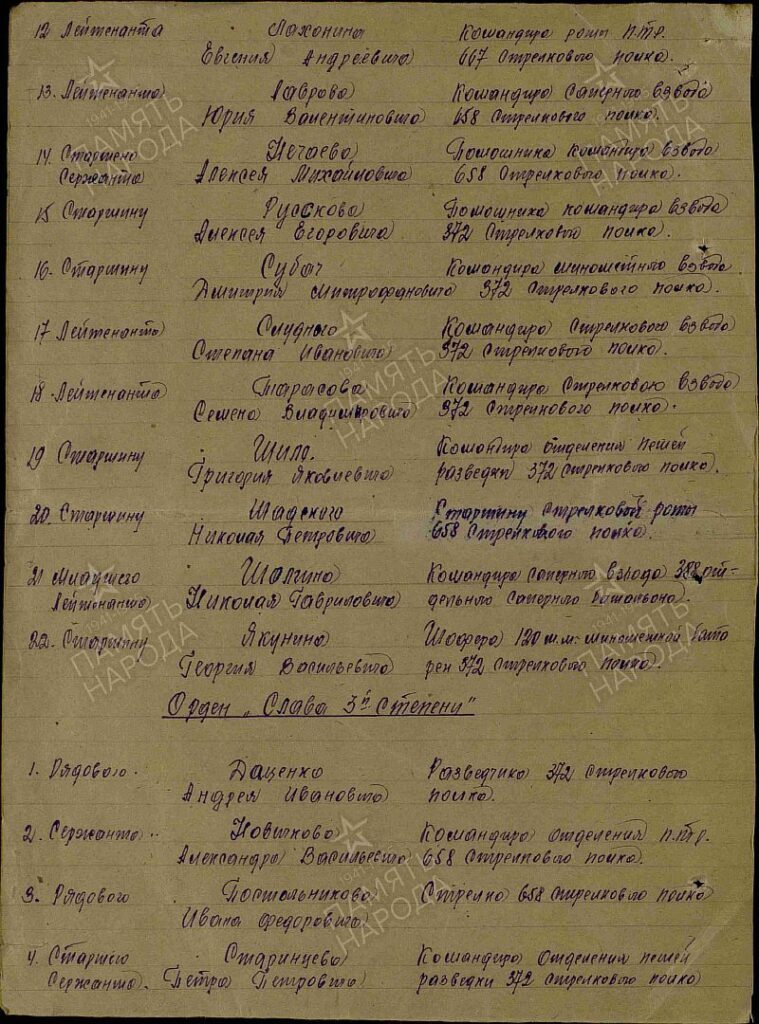 12 Лейтенанта Лахонина Командира роты п.тр.
Евгения Андреевича 667 Стрелкового полка.
13. Лейтенанта Лаврова Командира саперного взвода
Юрия Валентиновича 658 Стрелкового полка.
14. Старшего Нечаева Помошника командира взвода
Сержанта Алексея Михайловича 658 Стрелкового полка.
15 Старшину Русскова Помошника командира взвода
Алексея Егоровича 372 Стрелкового полка.
16. Старшину Субач Командира минометного взвода
Дмитрия Митрофановича 372 Стрелкового полка.
17 Лейтенанта Слудного Командира Стрелкового взвода
Степана Ивановича 372 Стрелкового полка.
18. Лейтенанта Тарасова Командира Стрелкового взвода
Семена Владимировича 372 Стрелкового полка.
19 Старшину Шило. Командира отделения пешей
Григория Яковлевича разведки 372 стрелкового полка.
20. Старшину Шадского Старшину Стрелковой роты
Николая Петровича 658 Стрелкового полка.
21 Младшего Шалгина Командира саперного взвода 388 от-
Лейтенанта Николая Гавриловича дельного Саперного батальона.
22. Старшину Якунина Шофера 120 м.м. минометной бата
Георгия Васильевича реи 372 Стрелкового полка.
Орден „Слава 3й Степени"
1. Рядового. Даценко Разведчика 372 Стрелкового
Андрея Ивановича полка.
2. Сержанта Новичкова Командира отделения п.тр.
Александра Васильевича 658 Стрелкового полка.
3. Рядового Постольникова Стрелка 658 Стрелкового полка
Ивана Федоровича
4. Старшего Старинцева Командира отделения пешей
Сержанта. Петра Петровича разведки 372 Стрелкового полка
ПАМЯТЬ
НАРОДА
ПАМЯТЬ
НАРОДА
ПАМЯТЬ
НАРОДА
ПАМЯТЬ
НАРОДА
ПАМЯТЬ
НАРОДА
ПАМЯТЬ
НАРОДА